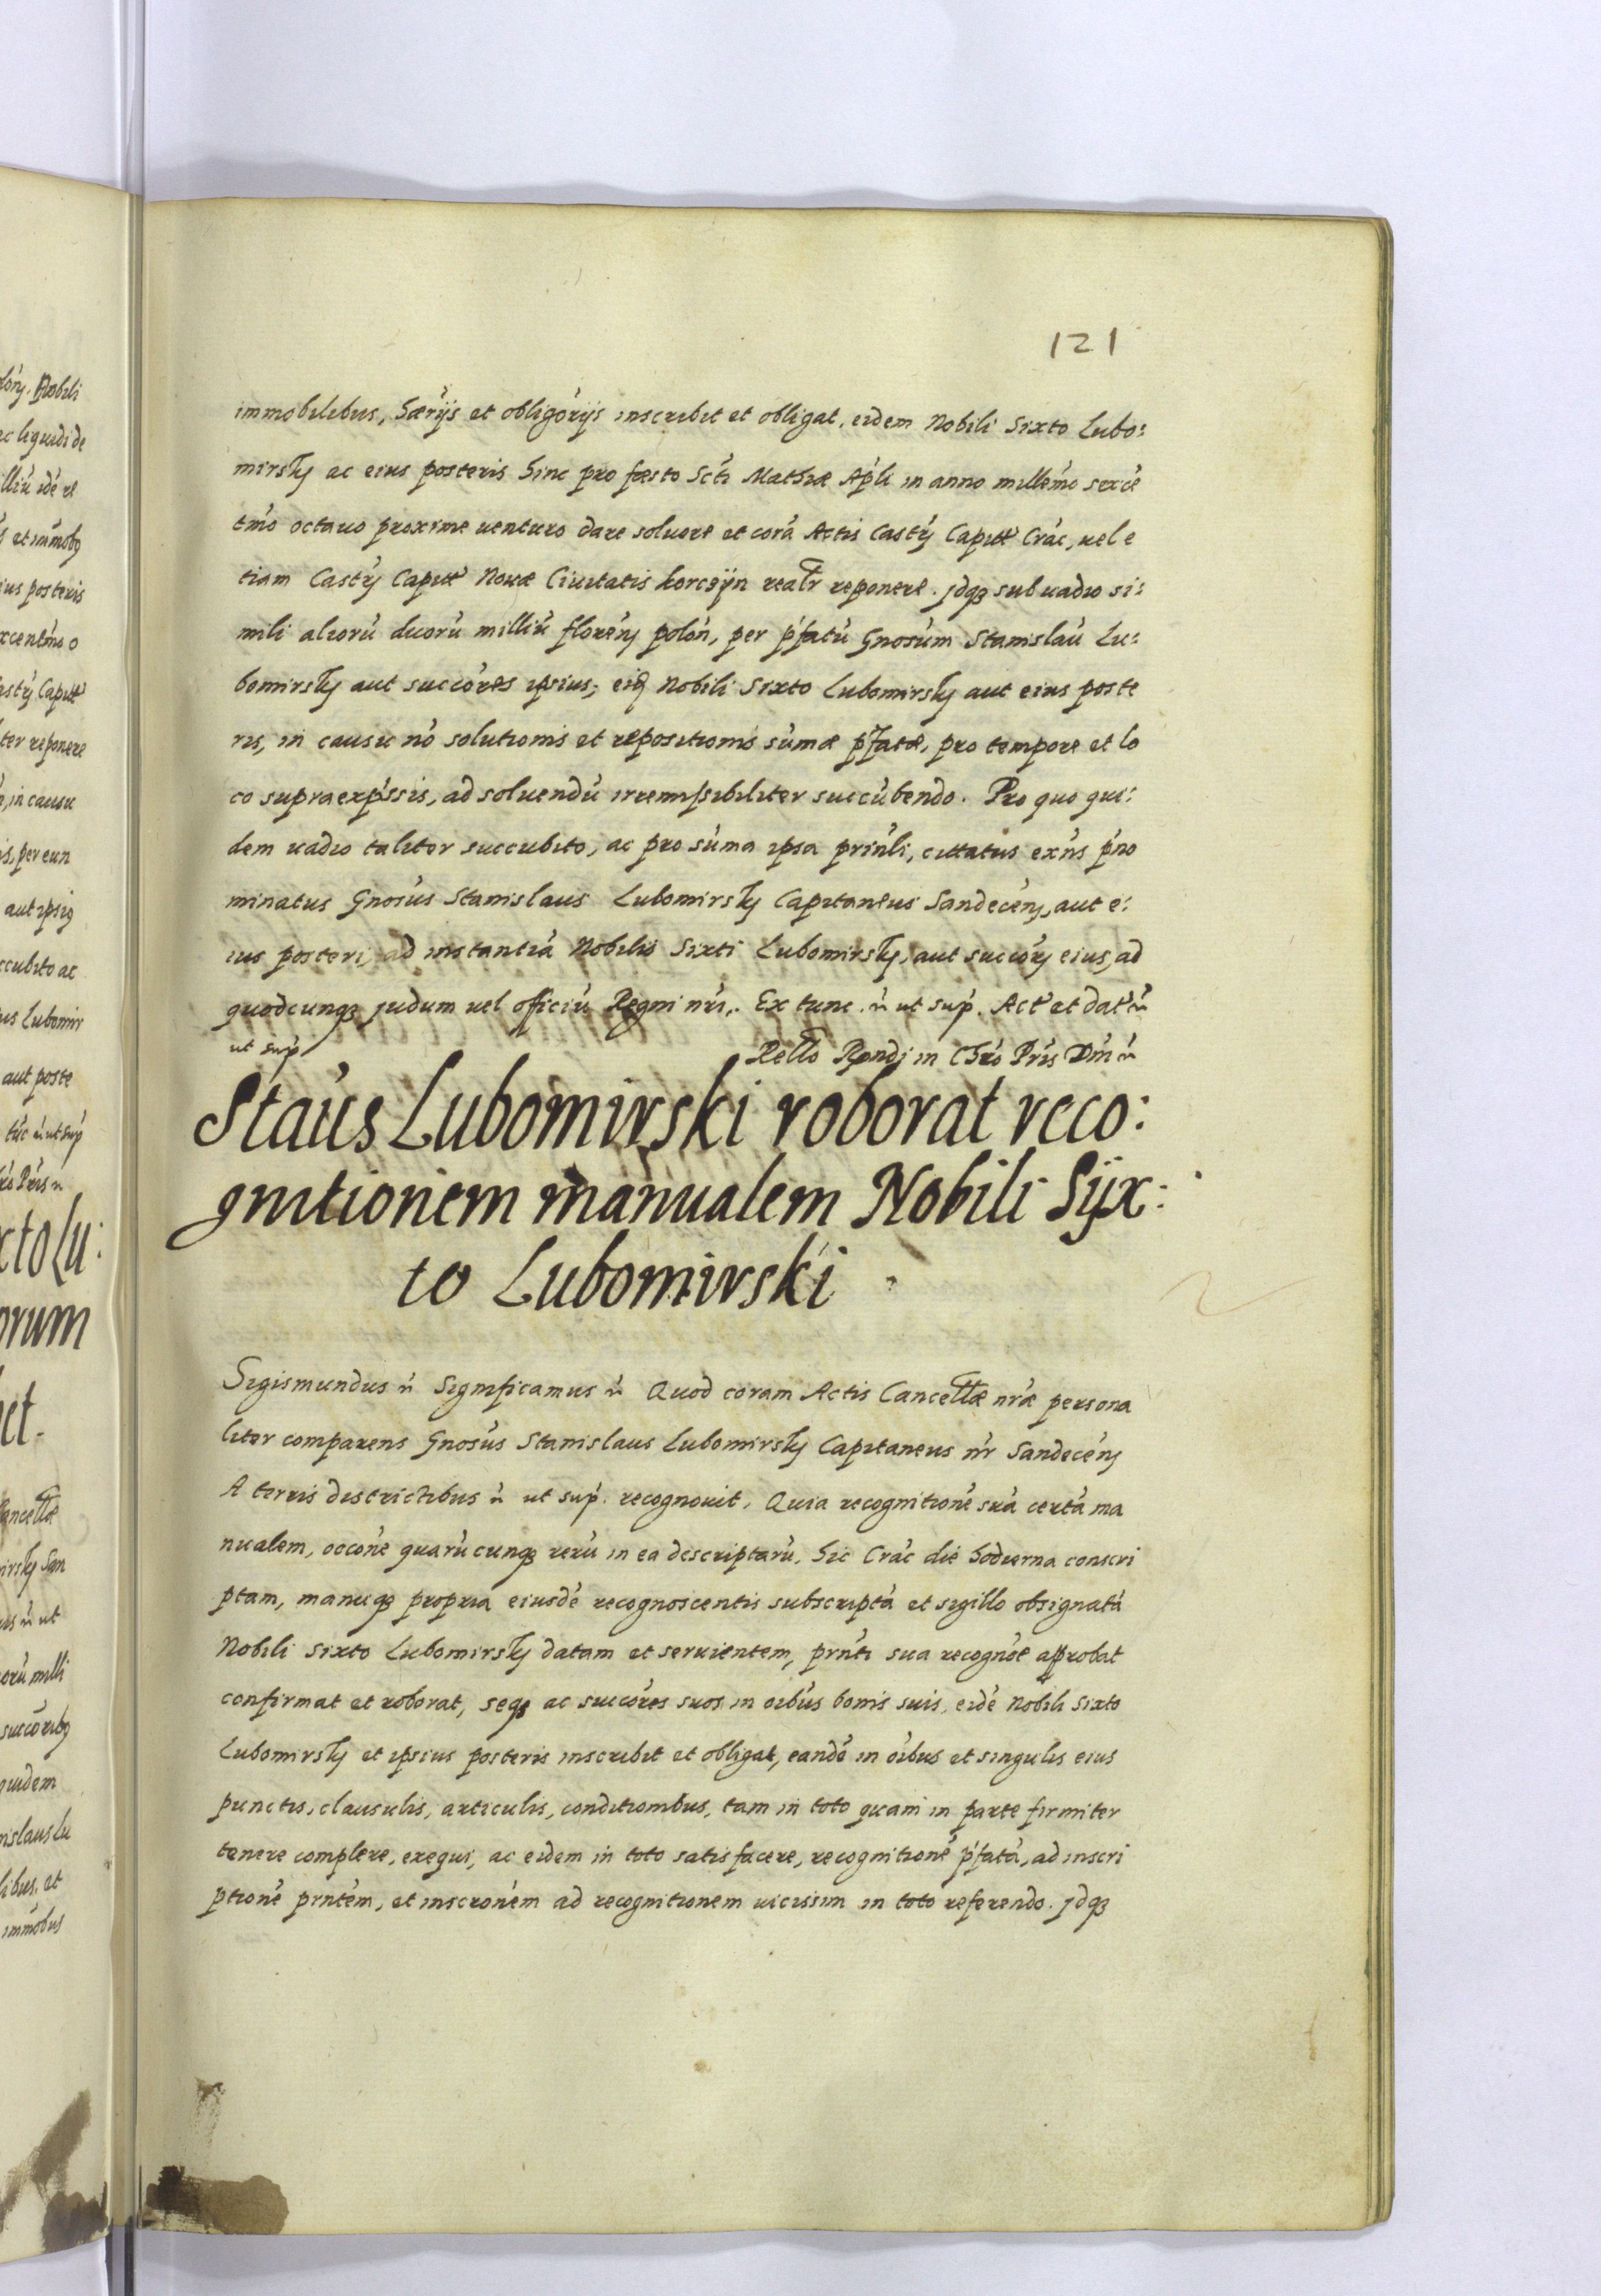 121
immobilibus, hærys et obligorijs inscribit et obligat, eidem Nobili Sixto Lubo:
mirsky ac eius posteris hinc pro fæsto Scti Mathiæ Apli in anno millemo sexcē
tmo octauo proxime uenturo dare soluere et corā Actis Castr Capitt Crac, uel e
tiam Castr Capitt Nouæ Ciuitatis korcsÿn realtr reponere. jdq3 sub uadio si:
mili aliorū duorū milliū floren polon, per pfatū Gnosum Stanislaū Lu:
bomirsky aut succores ipsius, eid Nobili Sixto Lubomirsky aut eius poste
ris, in causu nō solutionis et repositionis sūmæ pfatæ, pro tempore et lo
co supraexpssis, ad soluendū irremissibiliter succūbendo. Pro quo qui:
dem uadio taliter succubito, ac pro sūma ipsa prinli, cittatus exns pno
minatus Gnosus Stanislaus Lubomirsky Capitaneus Sandecen, aut e:
ius posteri, ad instantiā Nobilis Sixti Lubomirsky, aut succor eius, ad
quodcunq3 judum uel officiū Regni nri,. Ex tunc ut sup. Act et dat
ut sup
Rello Rendi in Chro Pris Dni
Staus Lubomirski roborat reco:
gnitionem manualem Nobili Sÿx:
to Lubomirski
Sigismundus Significamus Quod coram Actis Cancellæ nræ persona
liter comparens Gnosus Stanislaus Lubomirsky Capitaneus nr Sandecen
A terris districtibus ut sup. recognouit. Quia recognitionē suā certā ma
nualem, occone quarūcunq3 rerū in ea descriptarū, hic Crac die hodierna conscri
ptam, manuq3 propria eiusdē recognoscentis subscriptā et sigillo obsignatā
Nobili Sixto Lubomirsky datam et seruientem, prnti sua recognoe aprobat
confirmat et roborat, seq3 ac succores suos in oibus bonis suis, eidē Nobili Sixto
Lubomirsky et ipsius posteris inscribit et obligat, eandē in oibus et singulis eius
punctis, clausulis, articulis, conditionibus, tam in toto quam in parte firmiter
tenere complere, exequi, ac eidem in toto satisfacere, recognitionē pfatā, ad inscri
ptionē prntem, et inscronem ad recognitionem uicissim in toto referendo. jdq3